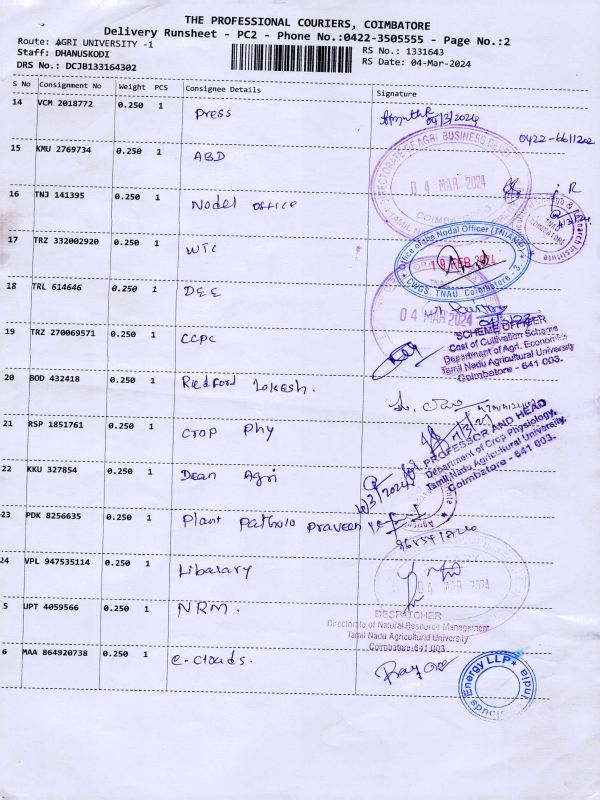 THE PROFESSIONAL COURIERS, COIMBATORE
Delivery Runsheet - PC2 - Phone No.:0422-3505555 - Page No.:2
Route: AGRI UNIVERSITY -1
Staff: DHANUSKODI
DRS No.: DCJB133164302
RS No.: 1331643
RS Date: 04-Mar-2024
S No Consignment No Weight PCS Consignee Details Signature
14 VCM 2018772 0.250 1 Press
04/3/2024
0422-6611202
15 KMU 2769734 0.250 1 ABD
DIRECTORATE OF AGRI BUSINESS DE
04 MAR 2024
COIMBATORE
16 TNJ 141395 0.250 1 Nodel office
Office of the Nodal Officer (TNIAMP)
19 FEB 2024
CWGS, TNAU, Coimbatore - 3
17 TRZ 332002920 0.250 1 WTC
18 TRL 614646 0.250 1 DEE
04 MAR 2024
19 TRZ 270069571 0.250 1 CCPC
SCHEME OFFICER
Cost of Cultivation Scheme
Department of Agri. Economics
Tamil Nadu Agricultural University
Coimbatore - 641 003.
20 BOD 432418 0.250 1 Redford Lokesh.
21 RSP 1851761 0.250 1 Crop Phy
PROFESSOR AND HEAD
Department of Crop Physiology,
Tamil Nadu Agricultural University,
Coimbatore - 641 003.
22 KKU 327854 0.250 1 Dean Agri
23 PDK 8256635 0.250 1 Plant Patholo Praveen
24 VPL 947535114 0.250 1 Libarary
04 MAR 2024
5 UPT 4059566 0.250 1 NRM.
DESPATCHER
Directorate of Natural Resource Management
Tamil Nadu Agricultural University
Coimbatore-641 003
6 MAA 864920738 0.250 1 e-clouds.
Energy LLP
India